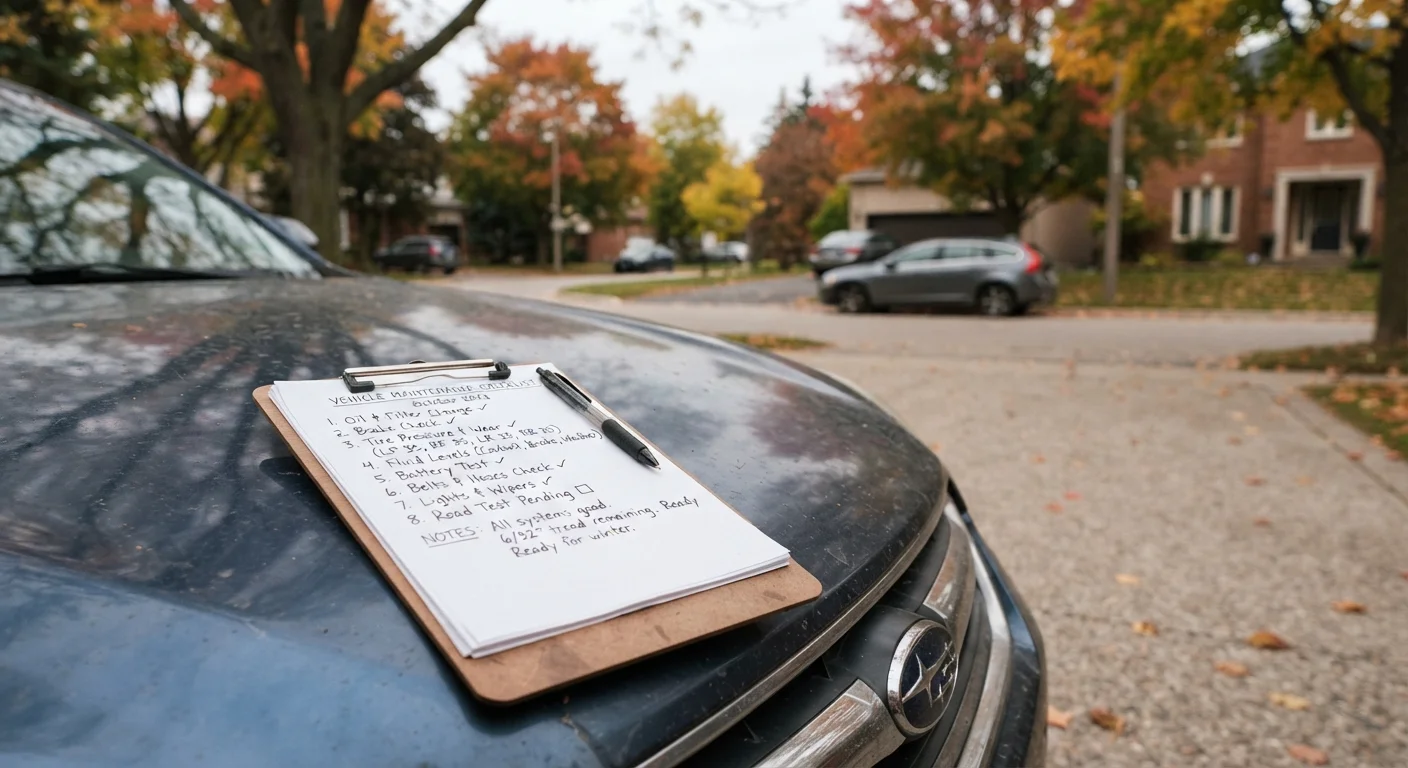 VEHICLE MAINTENANCE CHECKLIST
October
1. Oil & Filter Change ✓
2. Brake Check ✓
3. Tire Pressure & Wear ✓
(LF 35, 35, LR 33,
4. Fluid Levels (Brake,
5. Battery Test ✓
6. Belts & Hoses Check ✓
7. Lights & Wipers ✓
8. Road Test Pending ☐
NOTES: All systems good.
6/32" tread remaining. Ready
Ready for winter.